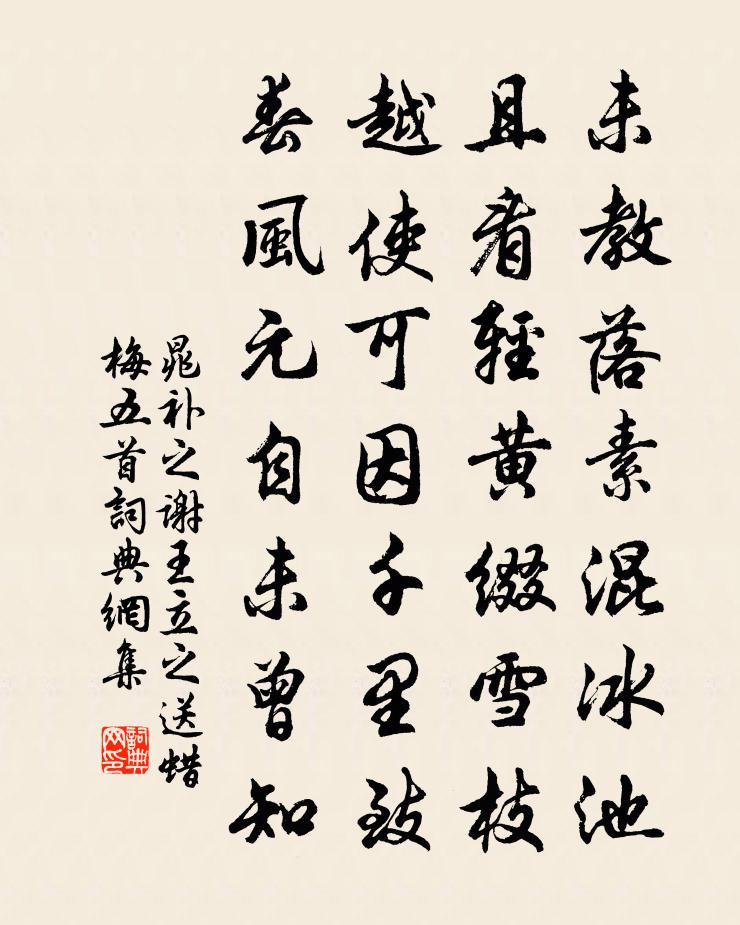 未教落素混冰池
且看輕黃綴雪枝
越使可因千里致
春風元自未曾知
晁补之谢王立之送蜡
梅五首詞典網集
詞典
网印